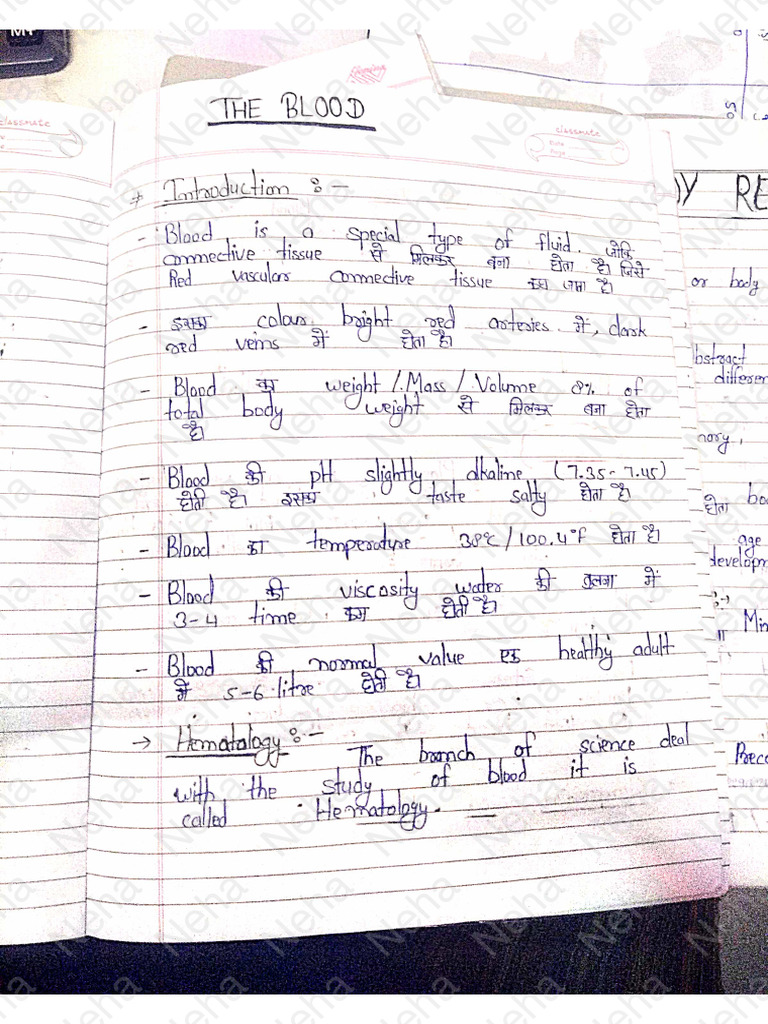 THE BLOOD
classmate
Date
Page
classmate
Introduction :-
- Blood is a special type of fluid. जोकि
connective tissue से मिलकर बना होता है। जिसे
Red vascular connective tissue कहा जाता है।
- इसका colour bright red arteries में, dark
red veins में होता है।
- Blood का weight / Mass / Volume 8% of
total body weight से मिलकर बना होता
है।
- Blood की pH slightly alkaline (7.35-7.45)
होती है। इसका taste salty होता है।
- Blood का temperature 38°c/100.4°F होता है।
- Blood की viscosity water की तुलना में
3-4 time कम होती है।
- Blood की normal value एक healthy adult
में 5-6 litre होती है।
→ Hematology :-
The branch of science deal
with the study of blood it is
called Hematology.
DY RE
or body
bstract
differen
nory,
होता bod
age
developm
Min
Preco
Neha